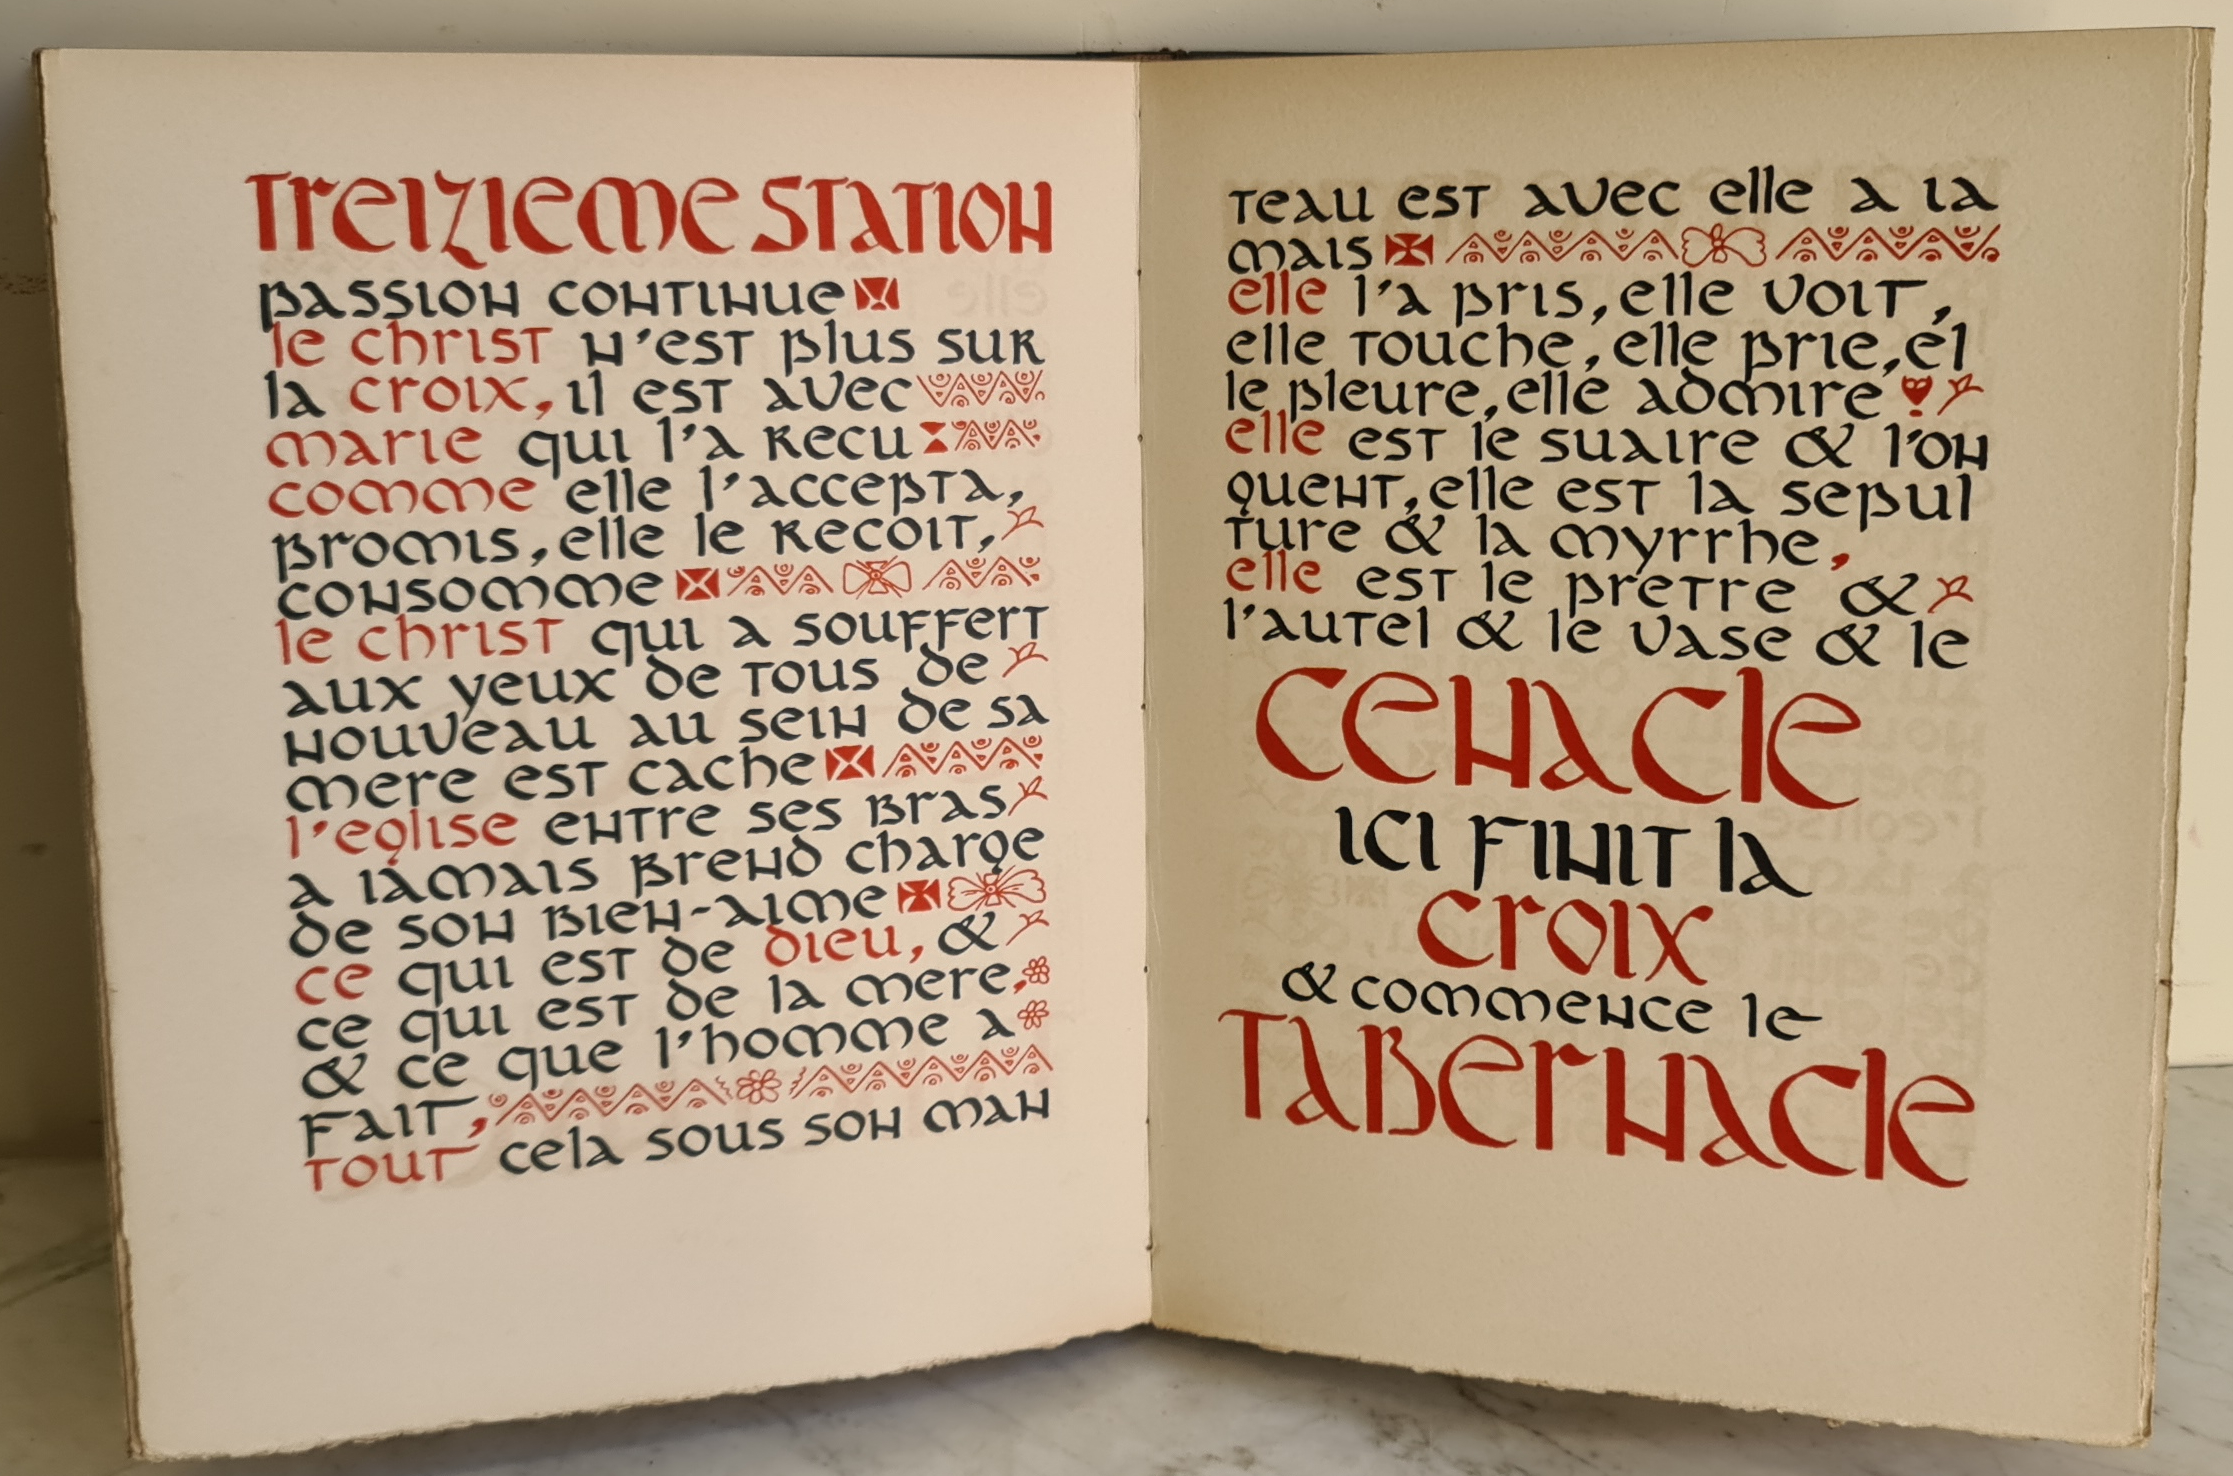 TREIZIEME STATION
passion continue
le christ n'est plus sur
la croix, il est avec
marie qui l'a recu
comme elle l'accepta,
promis, elle le recoit,
consomme
le christ qui a souffert
aux yeux de tous de
nouveau au sein de sa
mere est cache
l'eglise entre ses bras
a iamais prend charge
de son bien-aime
ce qui est de dieu, &
ce qui est de la mere,
& ce que l'homme a
fait,
tout cela sous son man
teau est avec elle a ia
mais
elle l'a pris, elle voit,
elle touche, elle prie, el
le pleure, elle admire
elle est le suaire & l'on
guent, elle est la sepul
ture & la myrrhe,
elle est le pretre &
l'autel & le vase & le
CENACLE
ICI FINIT la
CROIX
& commence le
TABERNACLE